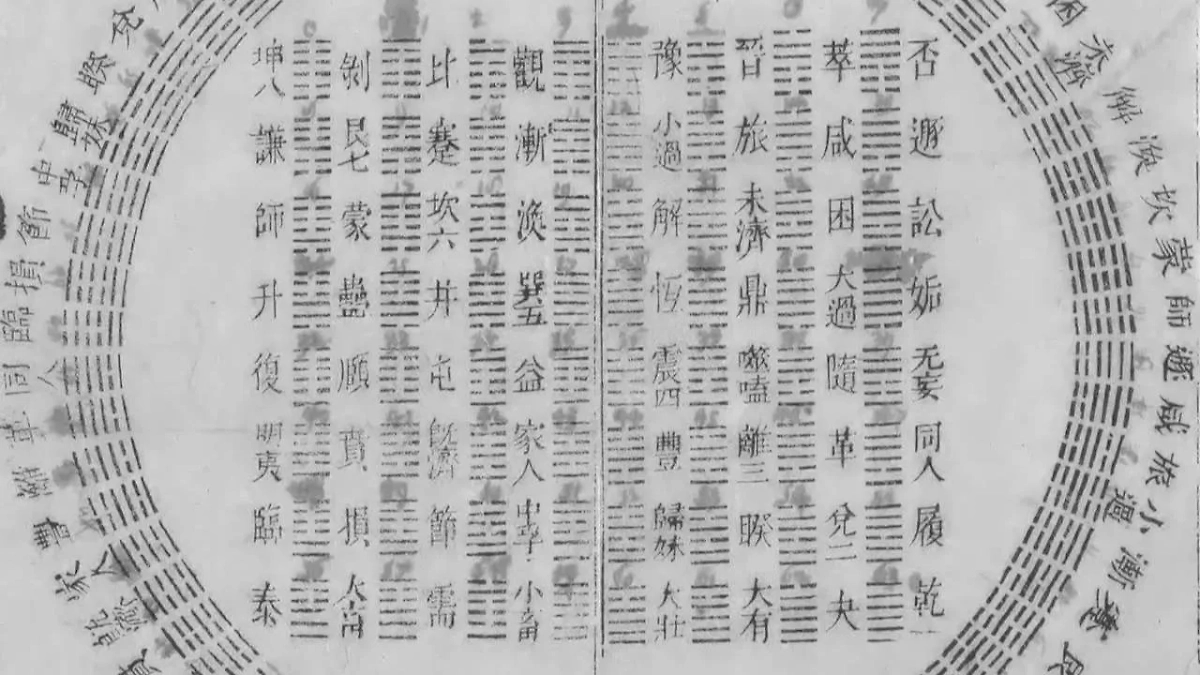 困 未濟 解 渙 坎 蒙 師 遯 咸 旅 小過 漸 蹇 艮
否 遯 訟 姤 无妄 同人 履 乾一
萃 咸 困 大過 隨 革 兌二 夬
晉 旅 未濟 鼎 噬嗑 離三 睽 大有
豫 小過 解 恆 震四 豐 歸妹 大壯
觀 漸 渙 巽五 益 家人 中孚 小畜
比 蹇 坎六 井 屯 既濟 節 需
剝 艮七 蒙 蠱 頤 賁 損 大畜
坤八 謙 師 升 復 明夷 臨 泰
兌 睽 歸妹 中孚 節 損 臨 同人 革 離 豐 家人 既濟 賁